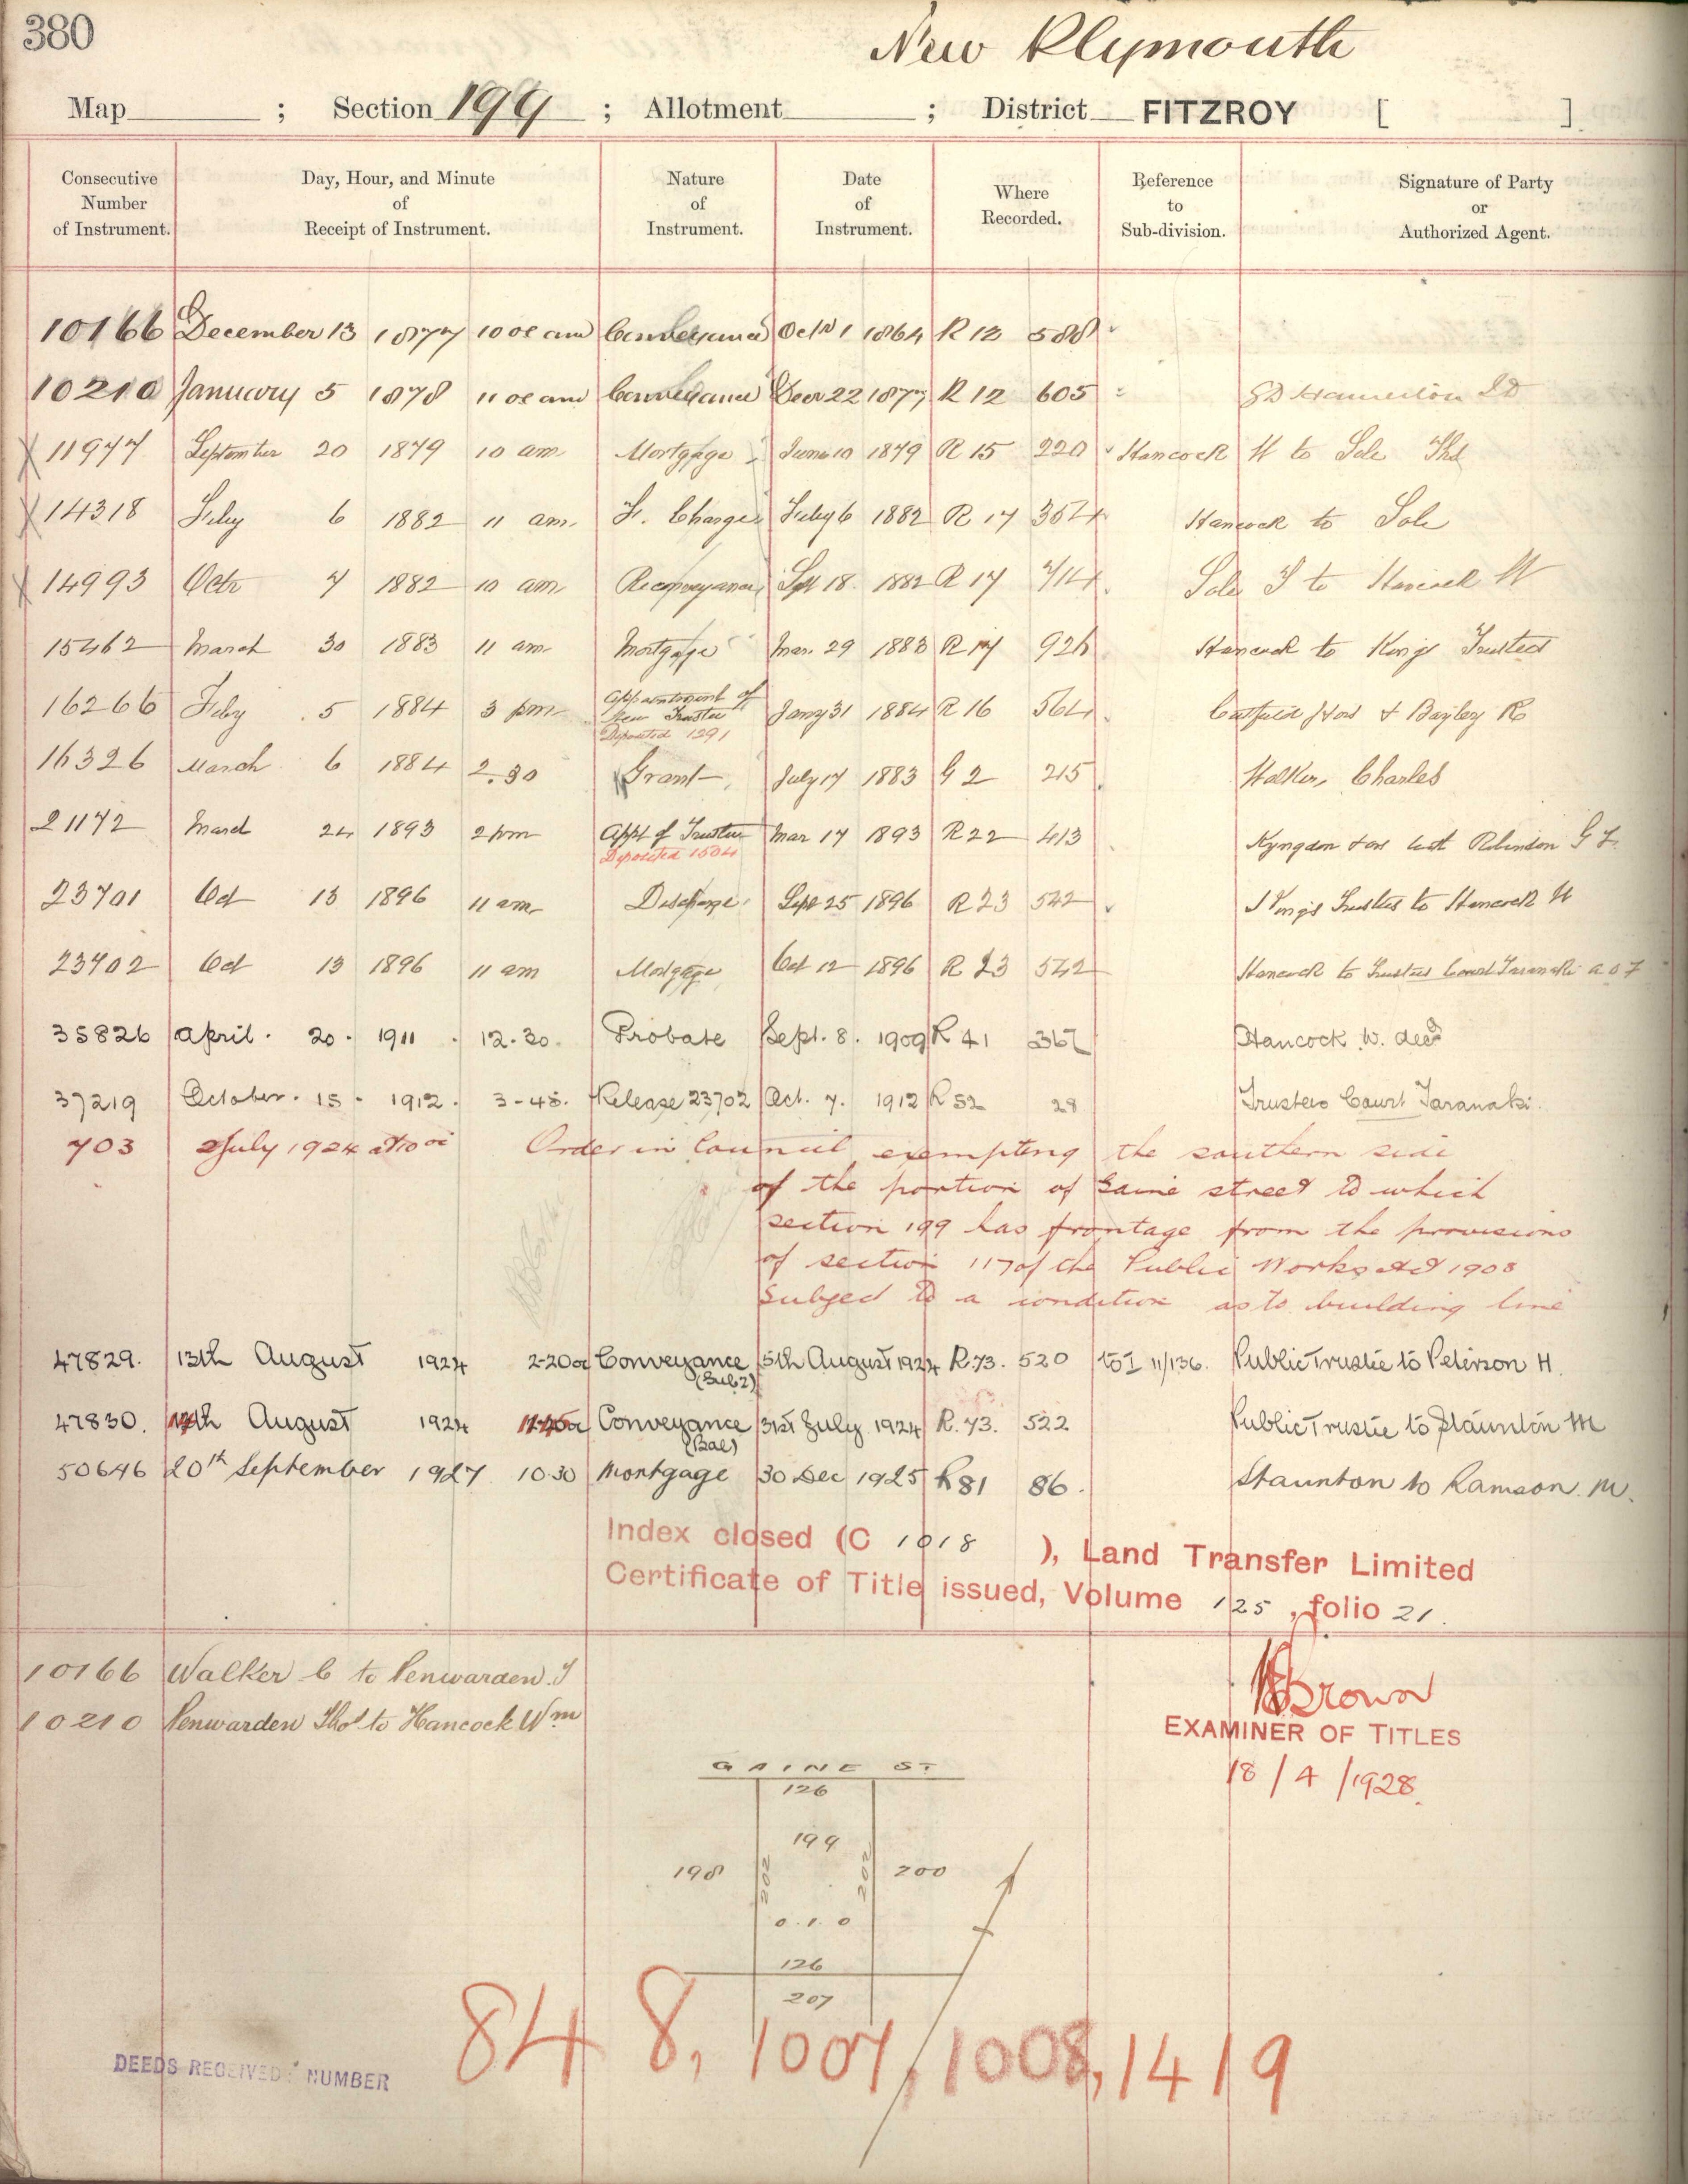 380
New Plymouth
Map ; Section 199 ; Allotment ; District FITZROY [ ]
Consecutive Number of Instrument. Day, Hour, and Minute of Receipt of Instrument. Nature of Instrument. Date of Instrument. Where Recorded. Reference to Sub-division. Signature of Party or Authorized Agent.
10166 December 13 1877 10 am Conveyance Octr 1 1864 R 12 588
10210 January 5 1878 11 am Conveyance Decr 22 1877 R 12 605
11977 September 20 1879 10 am Mortgage June 10 1879 R 15 220 Hancock W to Sole Thos
14318 Feby 6 1882 11 am F. Charge Feby 6 1882 R 17 354 Hancock to Sole
14993 Octr 7 1882 10 am Reconveyance Sept 18 1882 R 17 714 Sole T to Hancock W
15462 March 30 1883 11 am Mortgage Mar. 29 1883 R 17 926 Hancock to King's Trustees
16266 Feby 5 1884 3 pm Appointment of New Trustee Jany 31 1884 R 16 564 & Bayley R
Deposited 1291
16326 March 6 1884 2.30 Grant July 17 1883 G 2 215 Walker, Charles
21172 March 24 1893 2 pm Appt of Trustee Mar 17 1893 R 22 413 Kyngdon Robinson G F.
Deposited 1504
23701 Oct 13 1896 11 am Discharge Sept 25 1896 R 23 542 King's Trustees to Hancock W
23702 Oct 13 1896 11 am Mortgage Oct 12 1896 R 23 542 Hancock to Trustees Court Taranaki A O F
35826 April. 20. 1911. 12.30. Probate Sept. 8. 1909 R 41 367 Hancock. W. decd
37219 October. 15. 1912. 3-45. Release 23702 Oct. 7. 1912 R 52 28 Trustees Court Taranaki.
703 2 July 1924 at 10 Order in Council exempting the southern side
of the portion of Gaine street to which
section 199 has frontage from the provisions
of section 117 of the Public Works Act 1908
subject to a condition as to building line
47829. 13th August 1924 2-20 Conveyance 5th August 1924 R.73. 520 11/136. Public Trustee to Peterson H.
(Sub 2)
47830. August 1924 Conveyance 31st July 1924 R.73. 522 Public Trustee to Staunton M
(Bal)
50646 20th September 1927 10.30 Mortgage 30 Dec 1925 R 81 86. Staunton to Ramson. M.
Index closed (C 1018 ), Land Transfer Limited
Certificate of Title issued, Volume 125, folio 21.
10166 Walker C to Penwarden. T
10210 Penwarden Thos to Hancock Wm
Brown
EXAMINER OF TITLES
18/4/1928.
GAINE ST
126
199
198 202 202 200
0.1.0
126
207
848, 1007, 1008, 1419
DEEDS RECEIVED: NUMBER